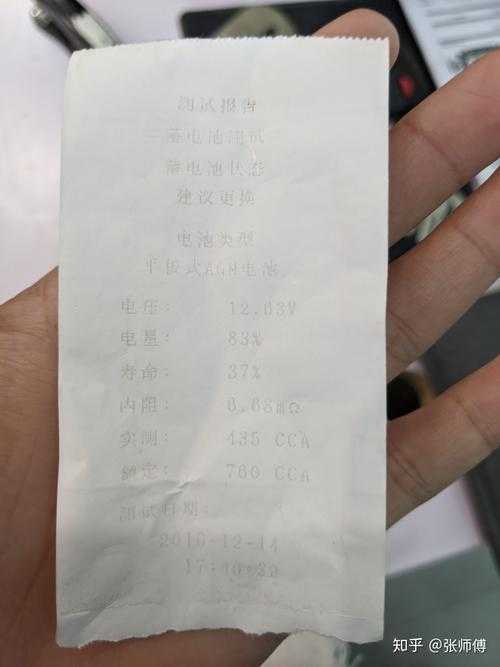 测试报告
蓄电池测试
蓄电池状态
建议更换
电池类型
平板式AGM电池
电压： 12.63V
电量： 83%
寿命： 37%
内阻： 6.68mΩ
实测： 435 CCA
额定： 760 CCA
测试日期：
2016-12-14
知乎 @张师傅